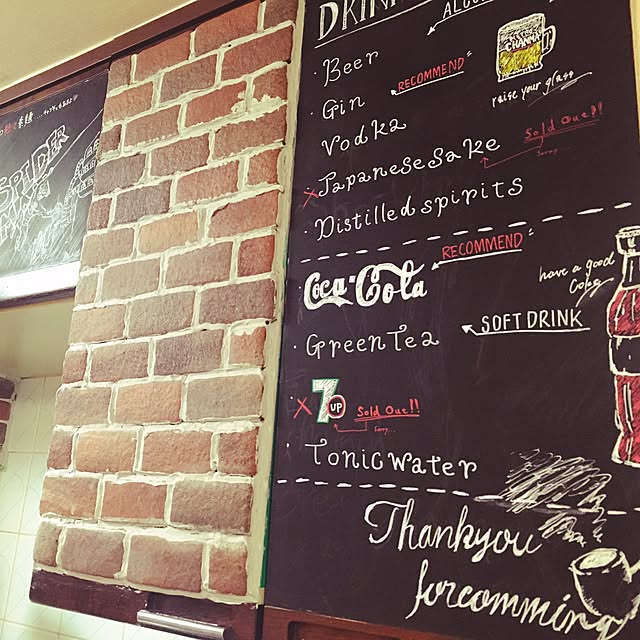 SPIDER
MAN
DRINK
ALCO
· Beer
CHANMA
· Gin
RECOMMEND"
raise your glass
· Vodka
Sold Out!!
Sorry...
× Japanese sake
· Distilled spirits
RECOMMEND"
· Coca-Cola
have a good
Coke
· Green Tea
SOFT DRINK
× 7UP
Sold Out!!
Sorry...
· Tonic water
Thankyou
forcomming